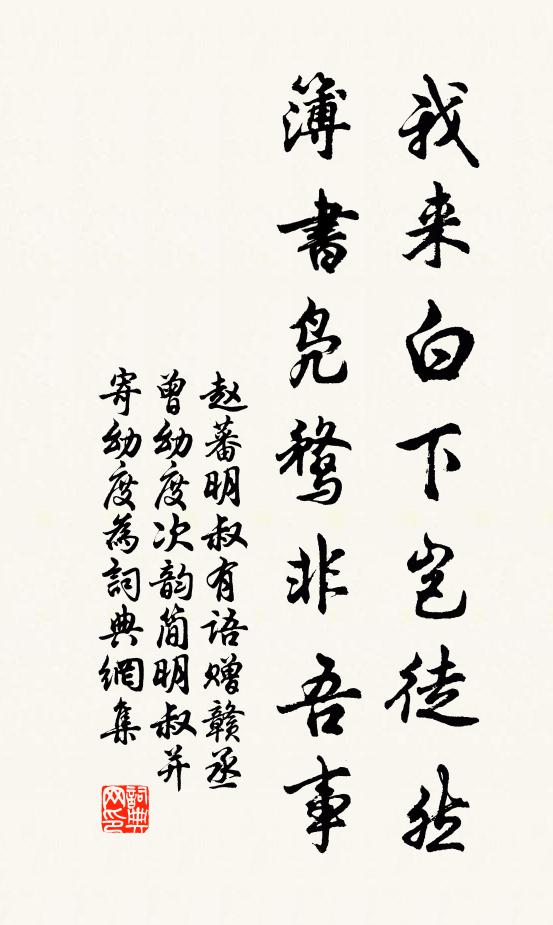 我来白下岂徒然
簿書凫鶩非吾事
赵蕃明叔有语赠赣丞
曾幼度次韵简明叔并
寄幼度為詞典網集
詞典
网印